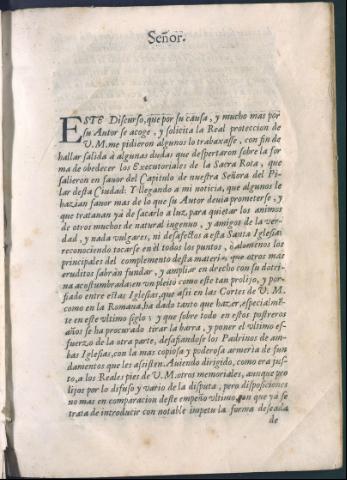 Señor.
ESTE Discurso, que por su causa, y mucho mas por
su Autor se acoge, y solicita la Real proteccion de
V.M. me pidieron algunos lo trabaxasse, con fin de
hallar salida à algunas dudas que despertaron sobre la for
ma de obedecer los Executoriales de la Sacra Rota, que
salieron en favor del Capitulo de nuestra Señora del Pi-
lar desta Ciudad: Y llegando a mi noticia, que algunos le
hazian fauor mas de lo que su Autor deuia prometerse, y
que tratauan yà de sacarlo a luz, para quietar los animos
de otros muchos de natural ingenuo, y amigos de la ver-
dad, y nada vulgares, ni desafectos a esta Santa Iglesia;
reconociendo tocarse en èl todos los puntos, ò alomenos los
principales del complemento desta materia, que otros mas
eruditos sabràn fundar, y ampliar en derecho con su dotri-
na acostumbrada; en vn pleito como este tan prolijo, y por-
fiado entre estas Iglesias, que assi en las Cortes de V. M.
como en la Romana, ha dado tanto que hazer, especialmẽ-
te en este vltimo siglo; y que sobre todo en estos postreros
años se ha procurado tirar la barra, y poner el vltimo es-
fuerzo de la otra parte, desafiandose los Padrinos de am-
bas Iglesias, con la mas copiosa y poderosa armeria de fun
damentos que les assisten. Auiendo dirigido, como era jus-
to, a los Reales pies de V.M. otros memoriales, aunque pro
lijos por lo difuso y vario de la disputa, pero disposiciones
no mas en comparacion deste empeño vltimo, en que yà se
trata de introducir con notable impetu la forma deseada
de